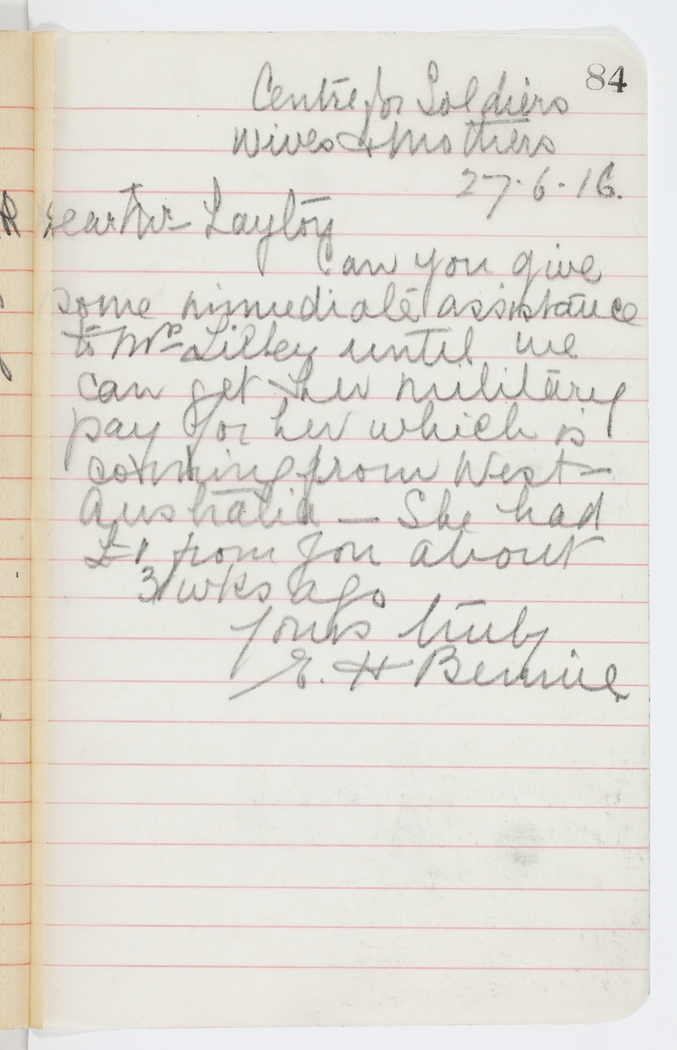 84
Centre for Soldiers
Wives & Mothers
27.6.16.
Dear Mr Layton
Can you give
some immediate assistance
to Mrs Lilley until we
can get her military
pay for her which is
coming from West
Australia — She had
£1 from you about
3 wks ago
Yours truly
E. H Bennie